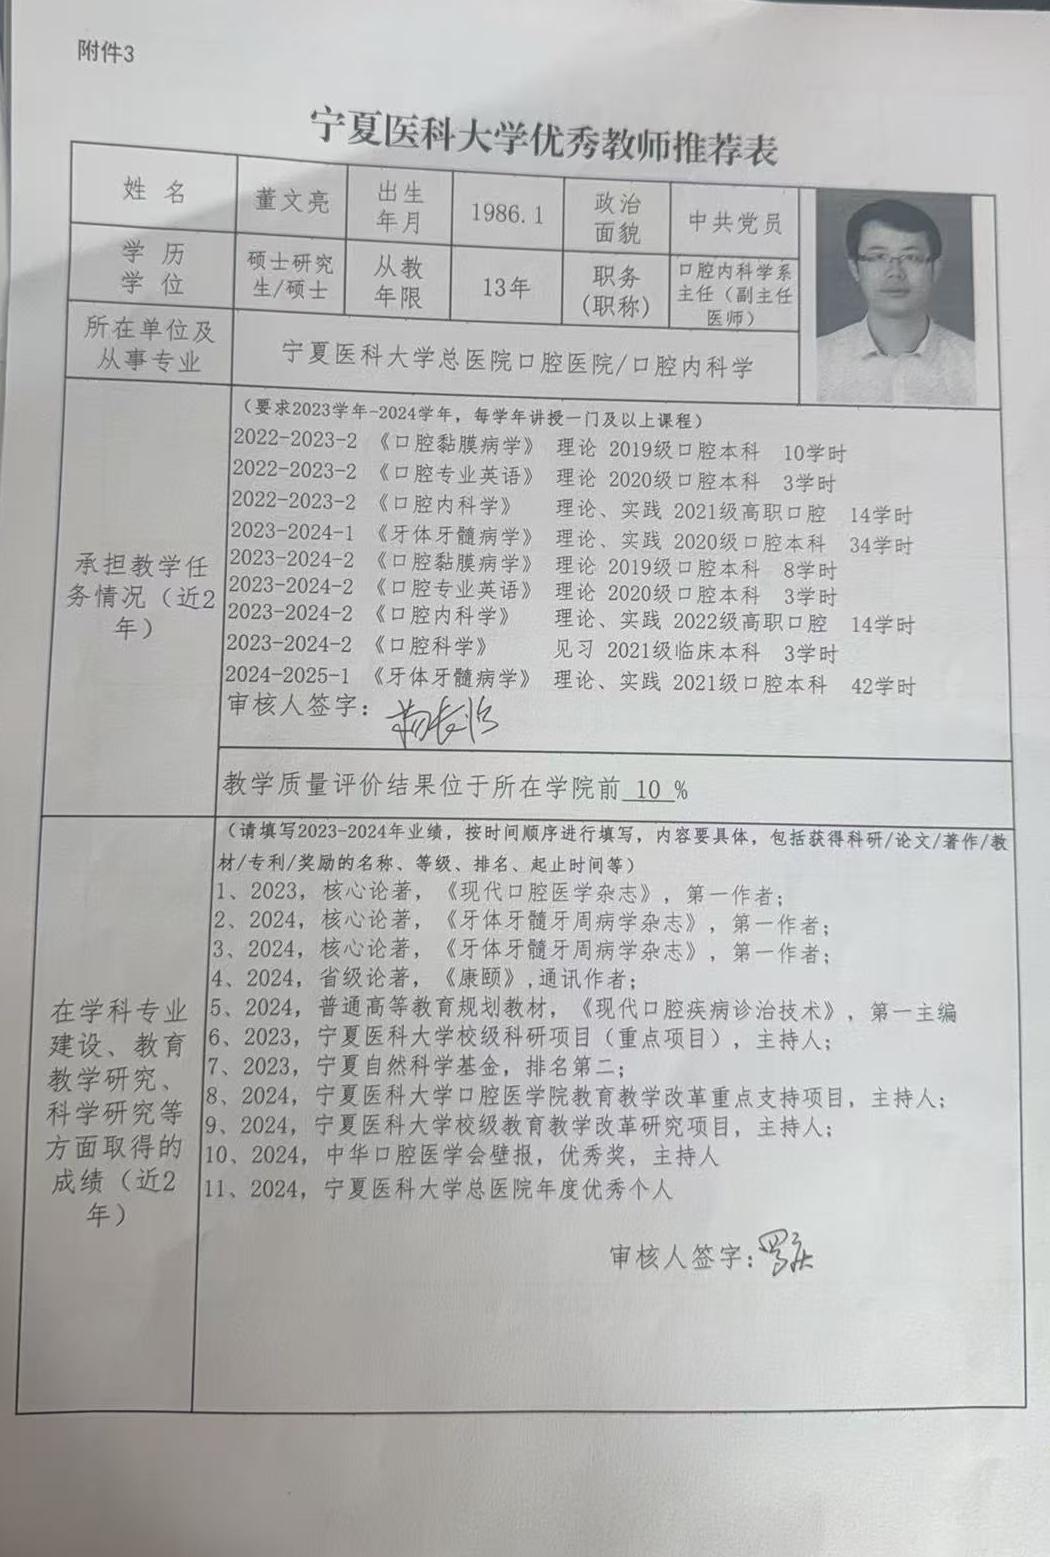 附件3
宁夏医科大学优秀教师推荐表
姓 名
董文亮
出生
年月
1986.1
政治
面貌
中共党员
学 历
学 位
硕士研究
生/硕士
从教
年限
13年
职务
(职称)
口腔内科学系
主任（副主任
医师）
所在单位及
从事专业
宁夏医科大学总医院口腔医院/口腔内科学
承担教学任
务情况（近2
年）
（要求2023学年-2024学年，每学年讲授一门及以上课程）
2022-2023-2 《口腔黏膜病学》 理论 2019级口腔本科 10学时
2022-2023-2 《口腔专业英语》 理论 2020级口腔本科 3学时
2022-2023-2 《口腔内科学》 理论、实践 2021级高职口腔 14学时
2023-2024-1 《牙体牙髓病学》 理论、实践 2020级口腔本科 34学时
2023-2024-2 《口腔黏膜病学》 理论 2019级口腔本科 8学时
2023-2024-2 《口腔专业英语》 理论 2020级口腔本科 3学时
2023-2024-2 《口腔内科学》 理论、实践 2022级高职口腔 14学时
2023-2024-2 《口腔科学》 见习 2021级临床本科 3学时
2024-2025-1 《牙体牙髓病学》 理论、实践 2021级口腔本科 42学时
审核人签字：
教学质量评价结果位于所在学院前 10 %
在学科专业
建设、教育
教学研究、
科学研究等
方面取得的
成绩（近2
年）
（请填写2023-2024年业绩，按时间顺序进行填写，内容要具体，包括获得科研/论文/著作/教
材/专利/奖励的名称、等级、排名、起止时间等）
1、2023，核心论著，《现代口腔医学杂志》，第一作者；
2、2024，核心论著，《牙体牙髓牙周病学杂志》，第一作者；
3、2024，核心论著，《牙体牙髓牙周病学杂志》，第一作者；
4、2024，省级论著，《康颐》,通讯作者；
5、2024，普通高等教育规划教材，《现代口腔疾病诊治技术》，第一主编
6、2023，宁夏医科大学校级科研项目（重点项目），主持人；
7、2023，宁夏自然科学基金，排名第二；
8、2024，宁夏医科大学口腔医学院教育教学改革重点支持项目，主持人；
9、2024，宁夏医科大学校级教育教学改革研究项目，主持人；
10、2024，中华口腔医学会壁报，优秀奖，主持人
11、2024，宁夏医科大学总医院年度优秀个人
审核人签字：